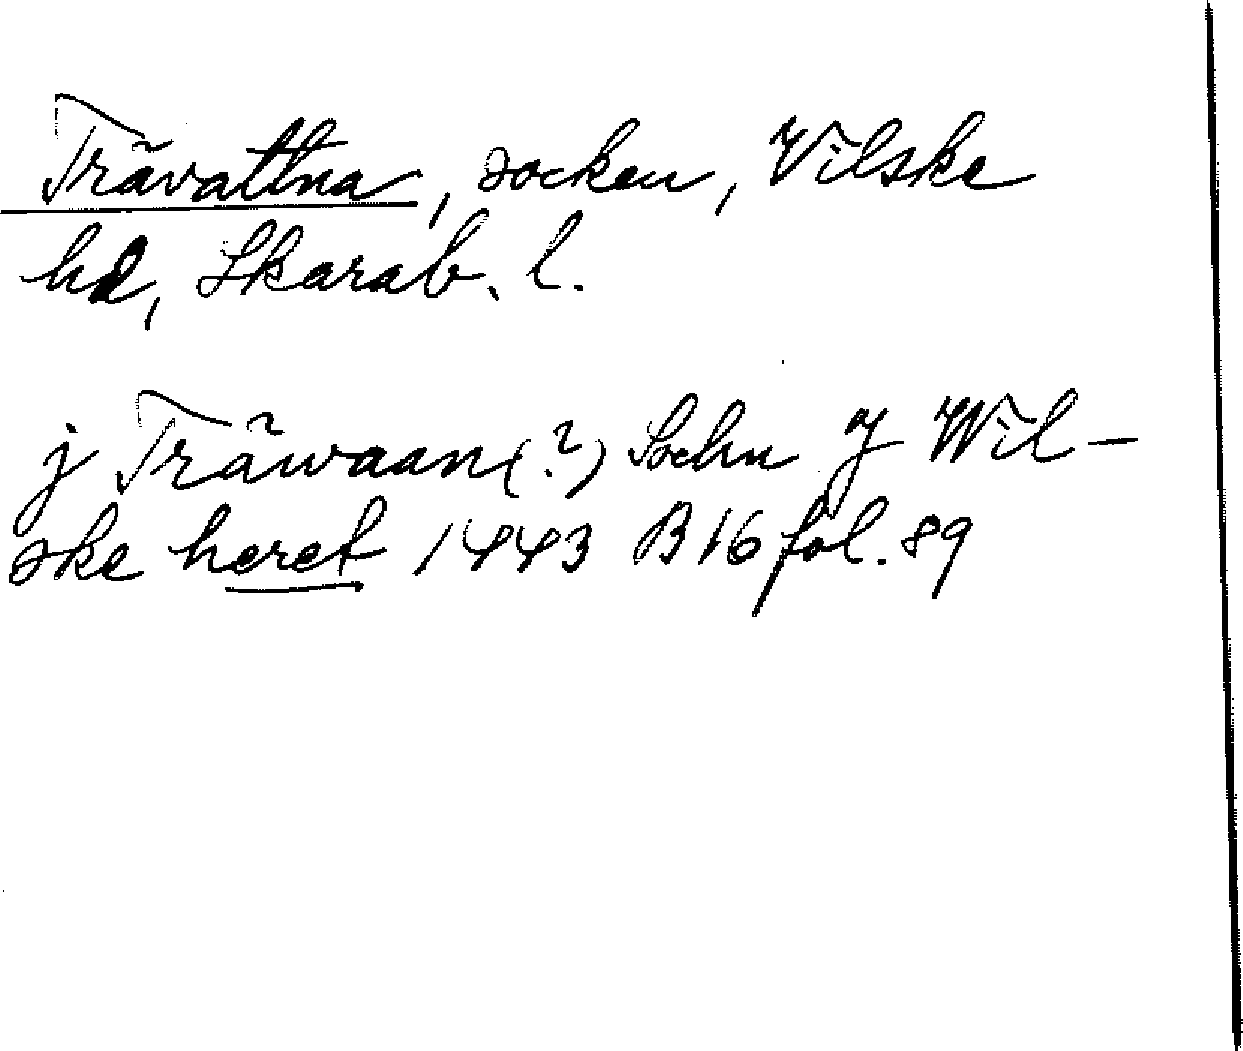 Trävattna, socken, Vilske
hd, Skarab. l.
j Träwaan(?) Sochn y Wil-
ske heret 1443 B16 fol. 89